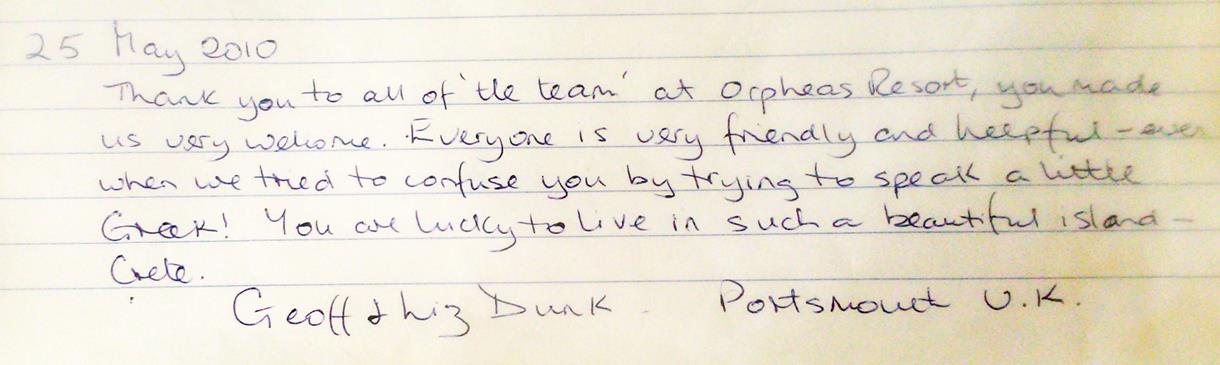 25 May 2010
Thank you to all of 'the team' at Orpheas Resort, you made
us very welcome. Everyone is very friendly and helpful - even
when we tried to confuse you by trying to speak a little
Greek! You are lucky to live in such a beautiful island -
Crete.
Geoff & Liz Dunk Portsmouth U.K.